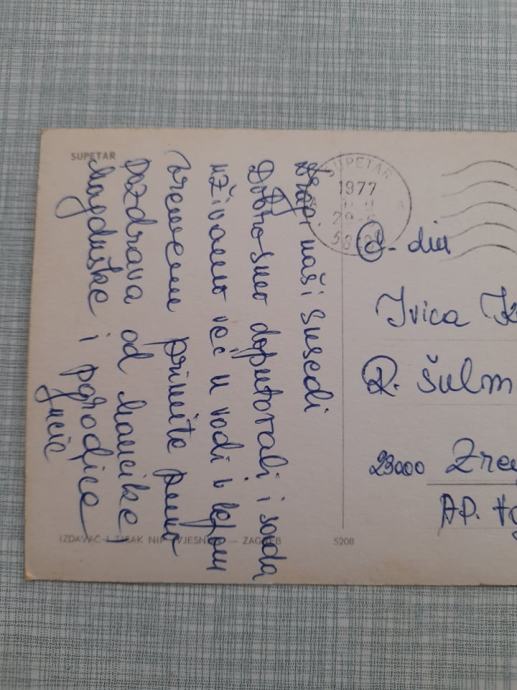 SUPETAR
Dragi naši susedi
Dobro smo doputovali i sada
uživamo već u vodi i lepom
vremenu primite puno
pozdrava od Mancike,
Magduške i porodice
SUPETAR
1977
G-din
Ivica K
R. Šulm
23000 Zre
AP.
IZDAVAČ I TISAK NIP VJESNIK — ZAGREB
5208